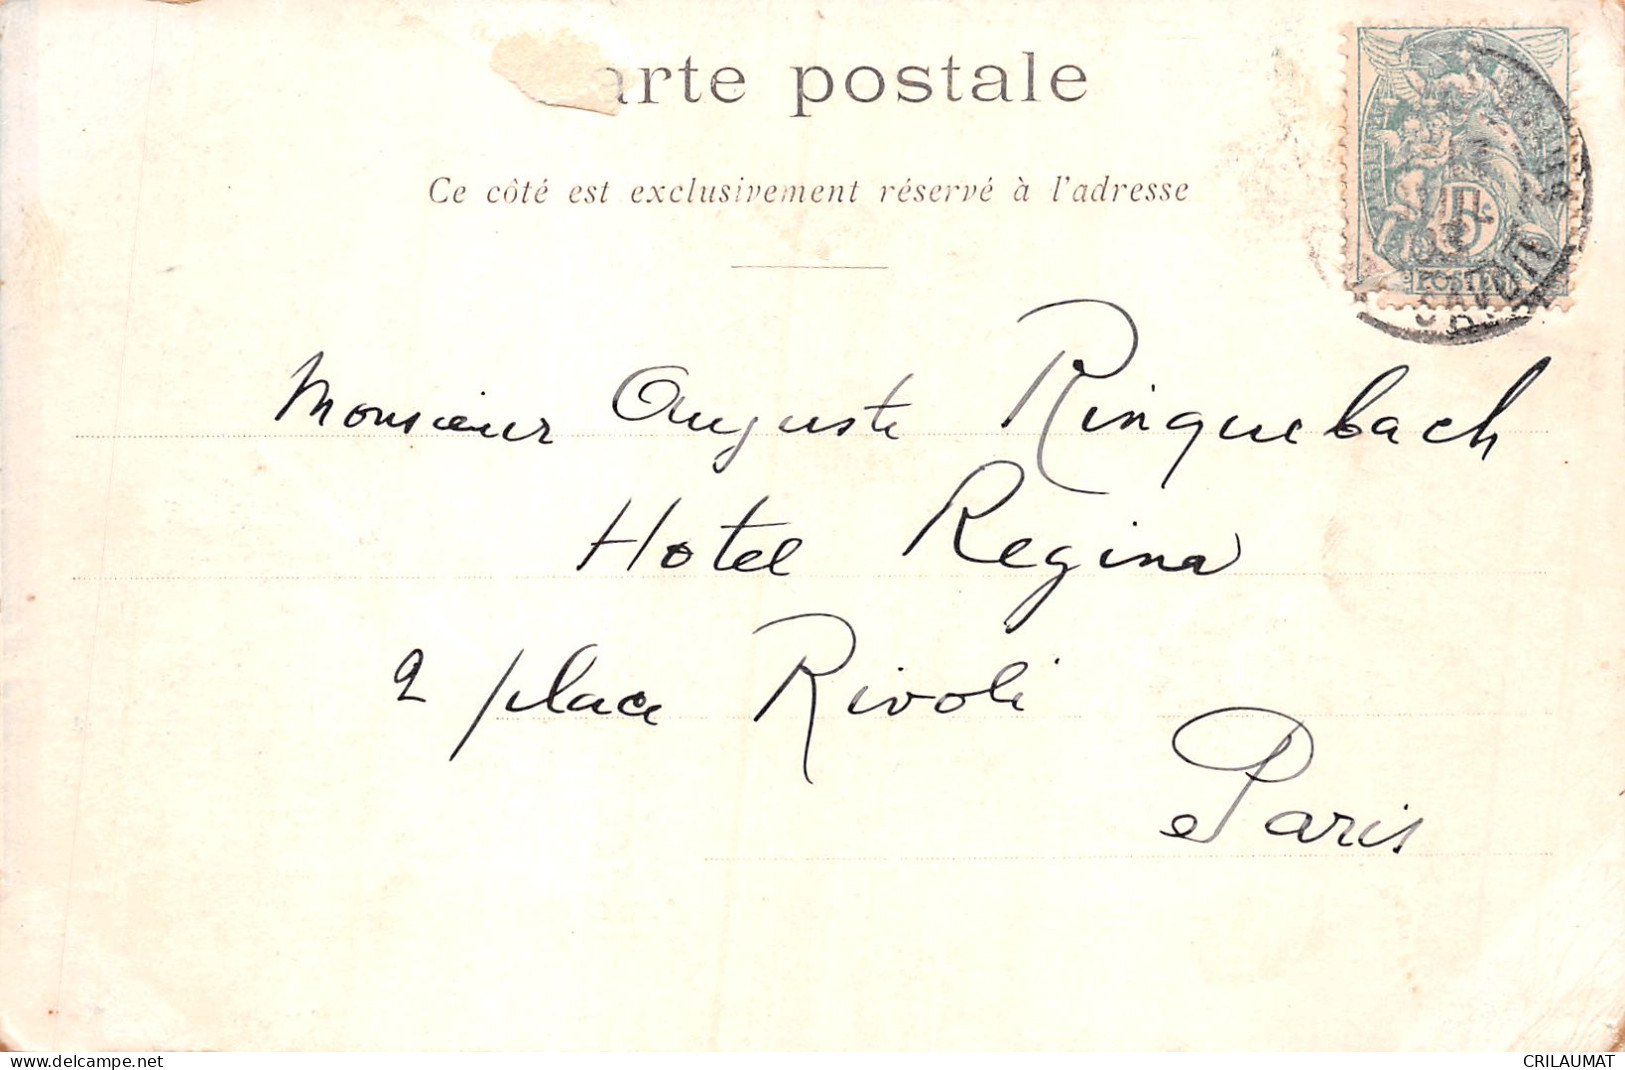 arte postale
Ce côté est exclusivement réservé à l'adresse
5
POSTES
SAVOIE
Monsieur Auguste Ringuebach
Hotel Regina
2 place Rivoli
Paris
www.delcampe.net
CRILAUMAT